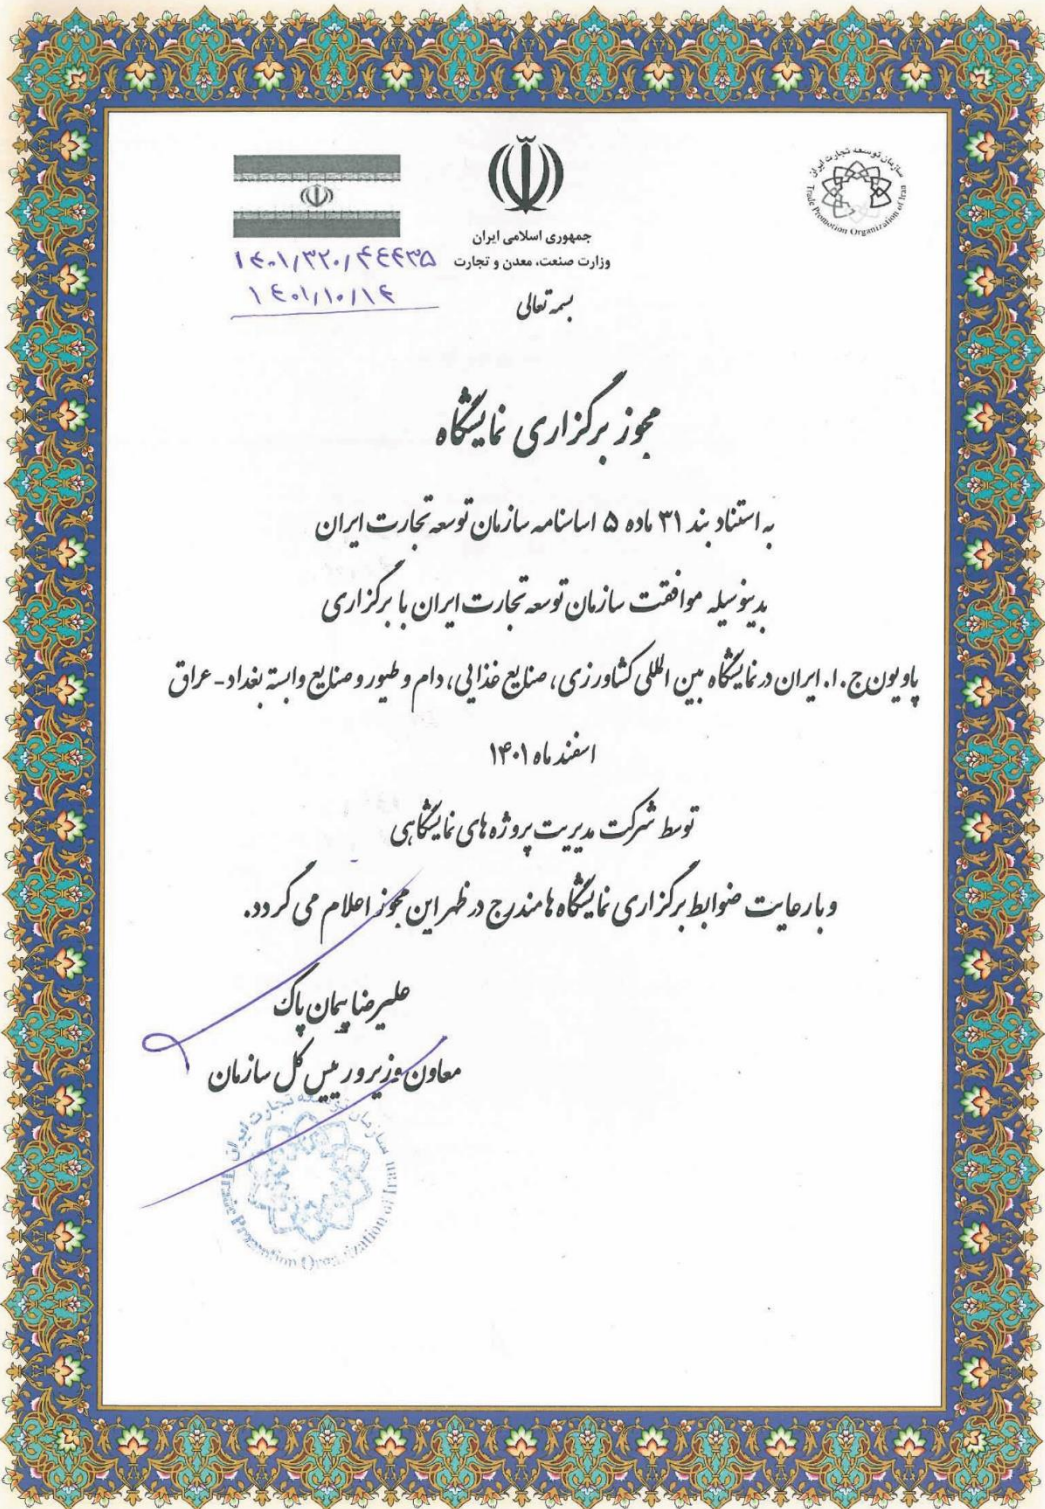 سازمان توسعه تجارت ایران
Trade Promotion Organization of Iran
جمهوری اسلامی ایران
وزارت صنعت، معدن و تجارت
۱۴۰۱/۳۲۰/۴۴۴۳۵
۱۴۰۱/۱۰/۱۴
بسمه تعالی
مجوز برگزاری نمایشگاه
به استناد بند ۳۱ ماده ۵ اساسنامه سازمان توسعه تجارت ایران
بدینوسیله موافقت سازمان توسعه تجارت ایران با برگزاری
پاویون ج.ا. ایران در نمایشگاه بین المللی کشاورزی، صنایع غذایی، دام و طیور و صنایع وابسته بغداد- عراق
اسفند ماه ۱۴۰۱
توسط شرکت مدیریت پروژه های نمایشگاهی
و با رعایت ضوابط برگزاری نمایشگاه ها مندرج در ظهر این مجوز اعلام می گردد.
علیرضا پیمان پاک
معاون وزیر و رییس کل سازمان
سازمان توسعه تجارت ایران
Trade Promotion Organization of Iran